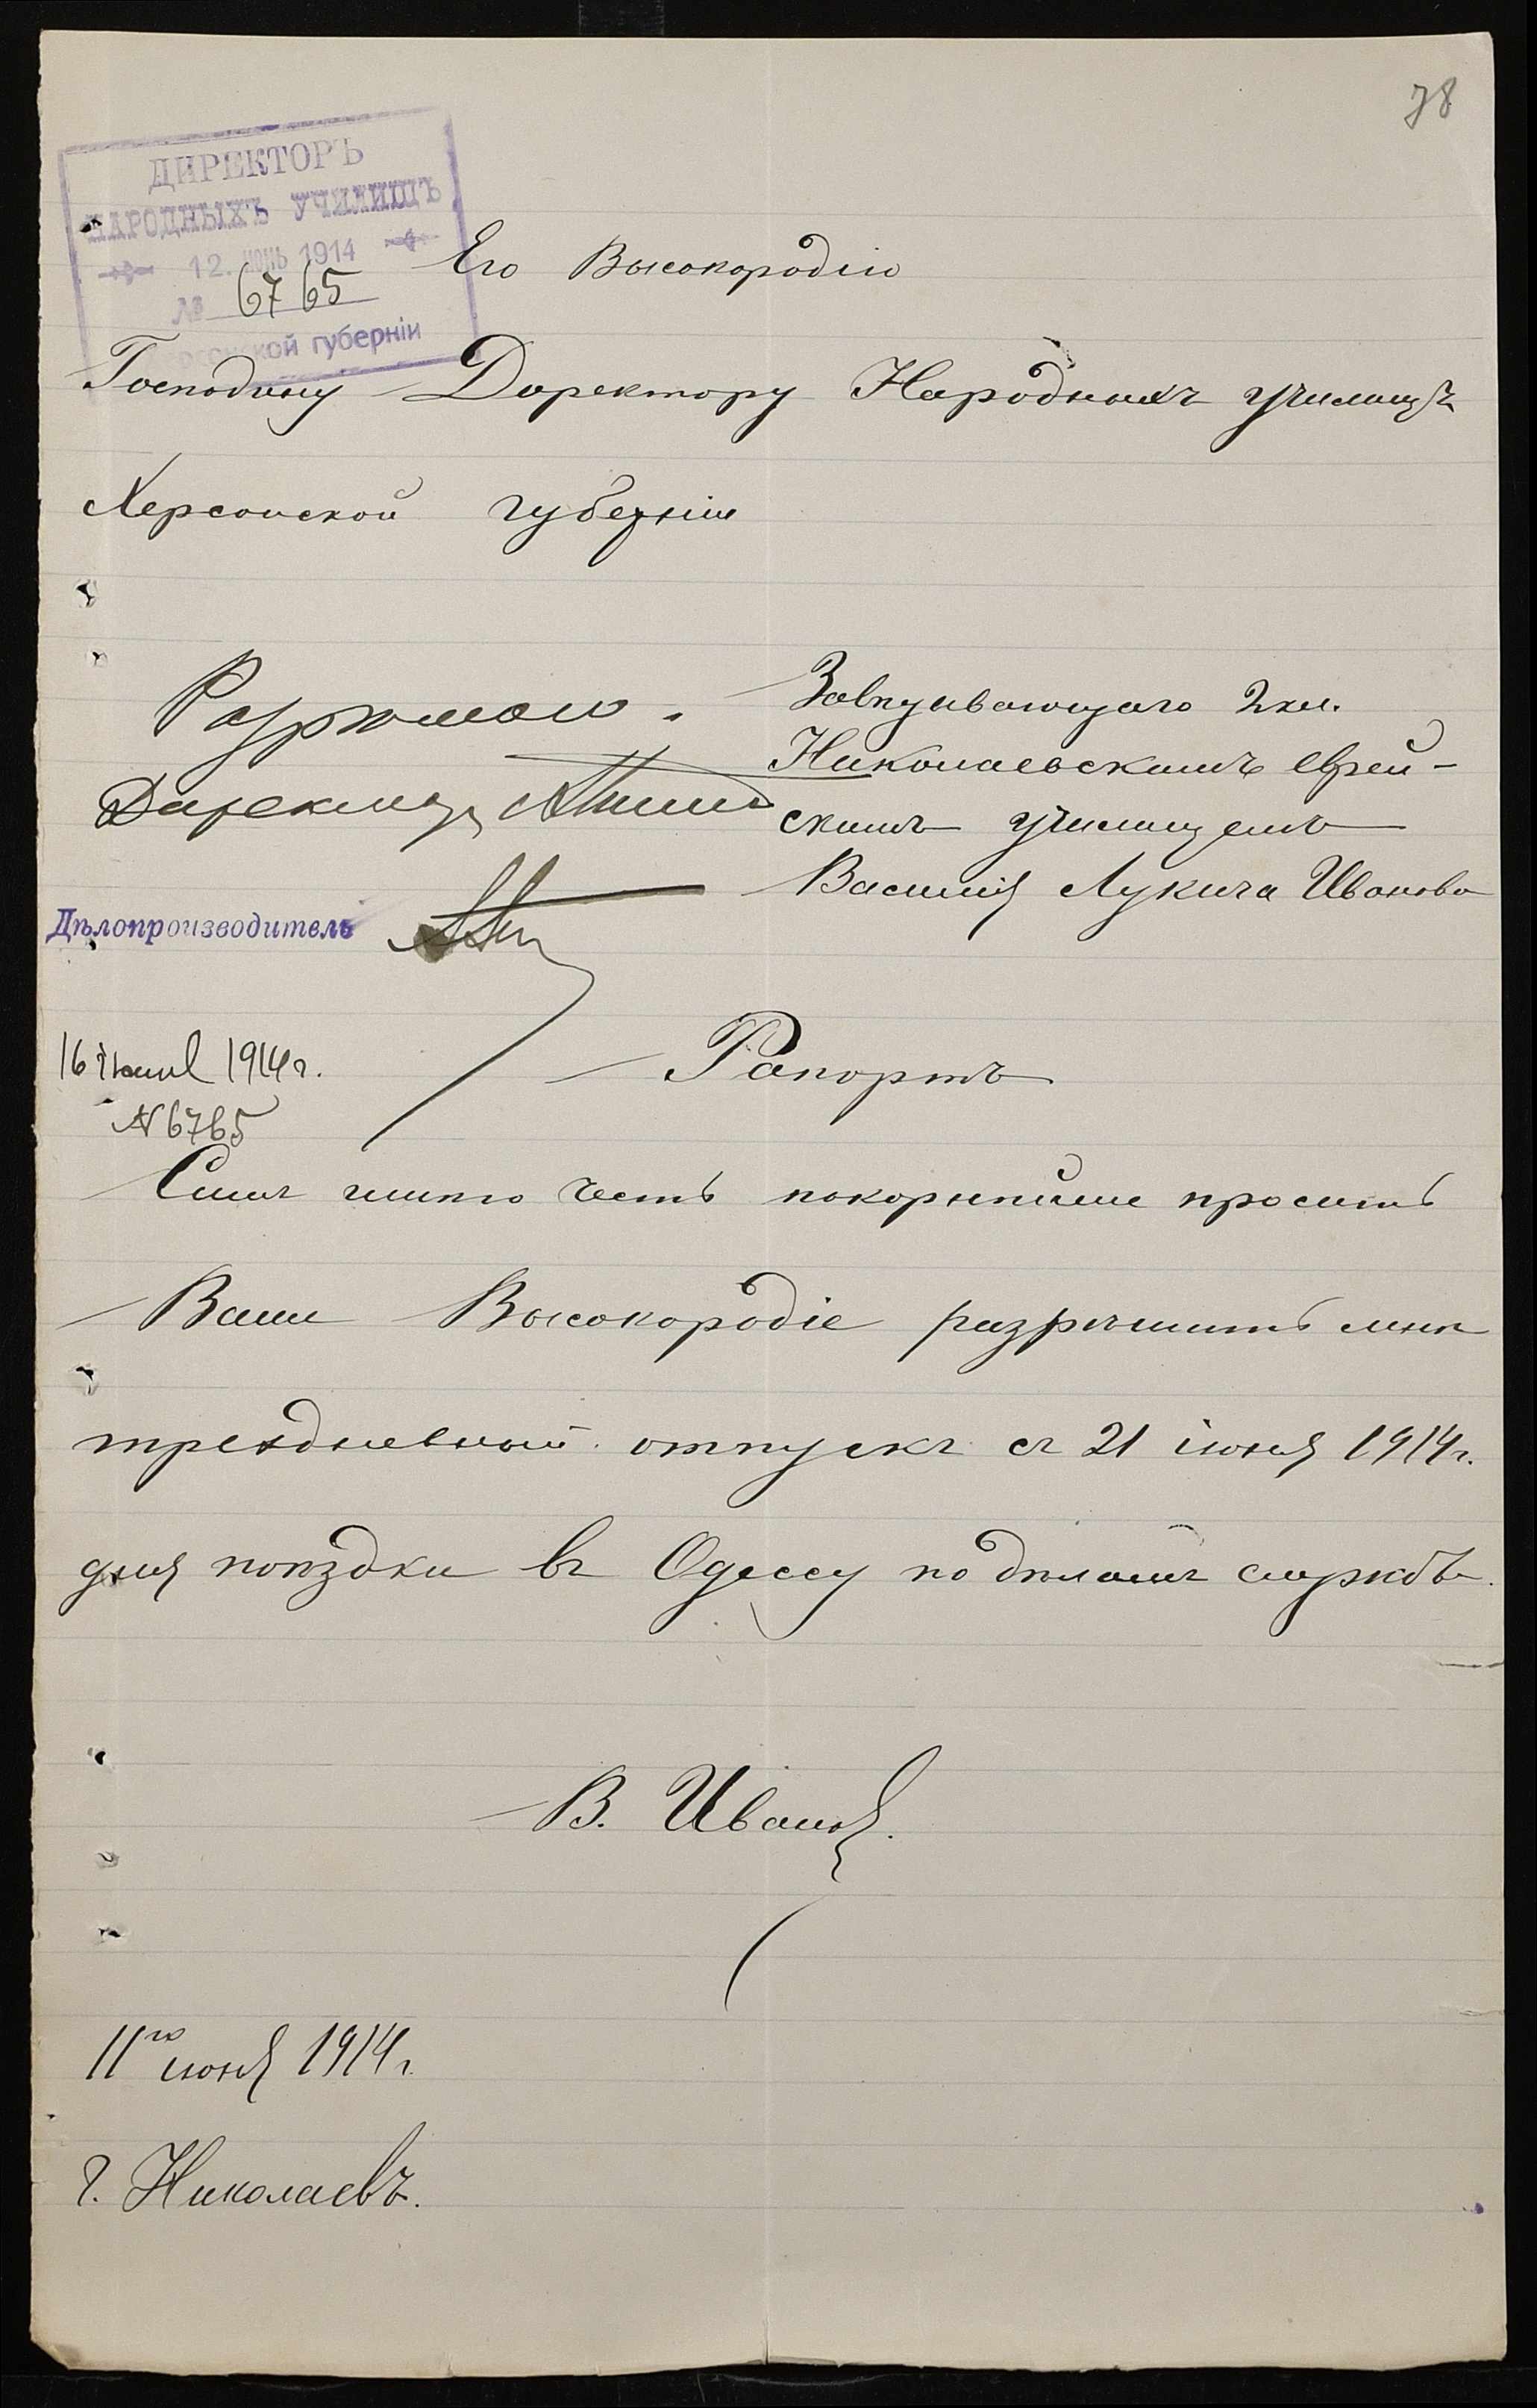 78
ДИРЕКТОРЪ
НАРОДНЫХЪ УЧИЛИЩЪ
12. ІЮНЬ 1914
№ 6765
Херсонской губерніи
Его Высокородію
Господину Директору Народныхъ училищъ
Херсонской губерніи
Завѣдывающаго 2 кл.
Николаевскимъ еврей-
скимъ училищемъ
Василія Лукича Иванова
Разрѣшаю.
Директоръ
Дѣлопроизводитель
16 іюня 1914 г.
№ 6765
Рапортъ
Симъ имѣю честь покорнѣйше просить
Ваше Высокородіе разрѣшить мнѣ
трехдневный отпускъ съ 21 іюня 1914 г.
для поѣздки въ Одессу по дѣламъ службы.
В. Ивановъ.
11го іюня 1914 г.
г. Николаевъ.